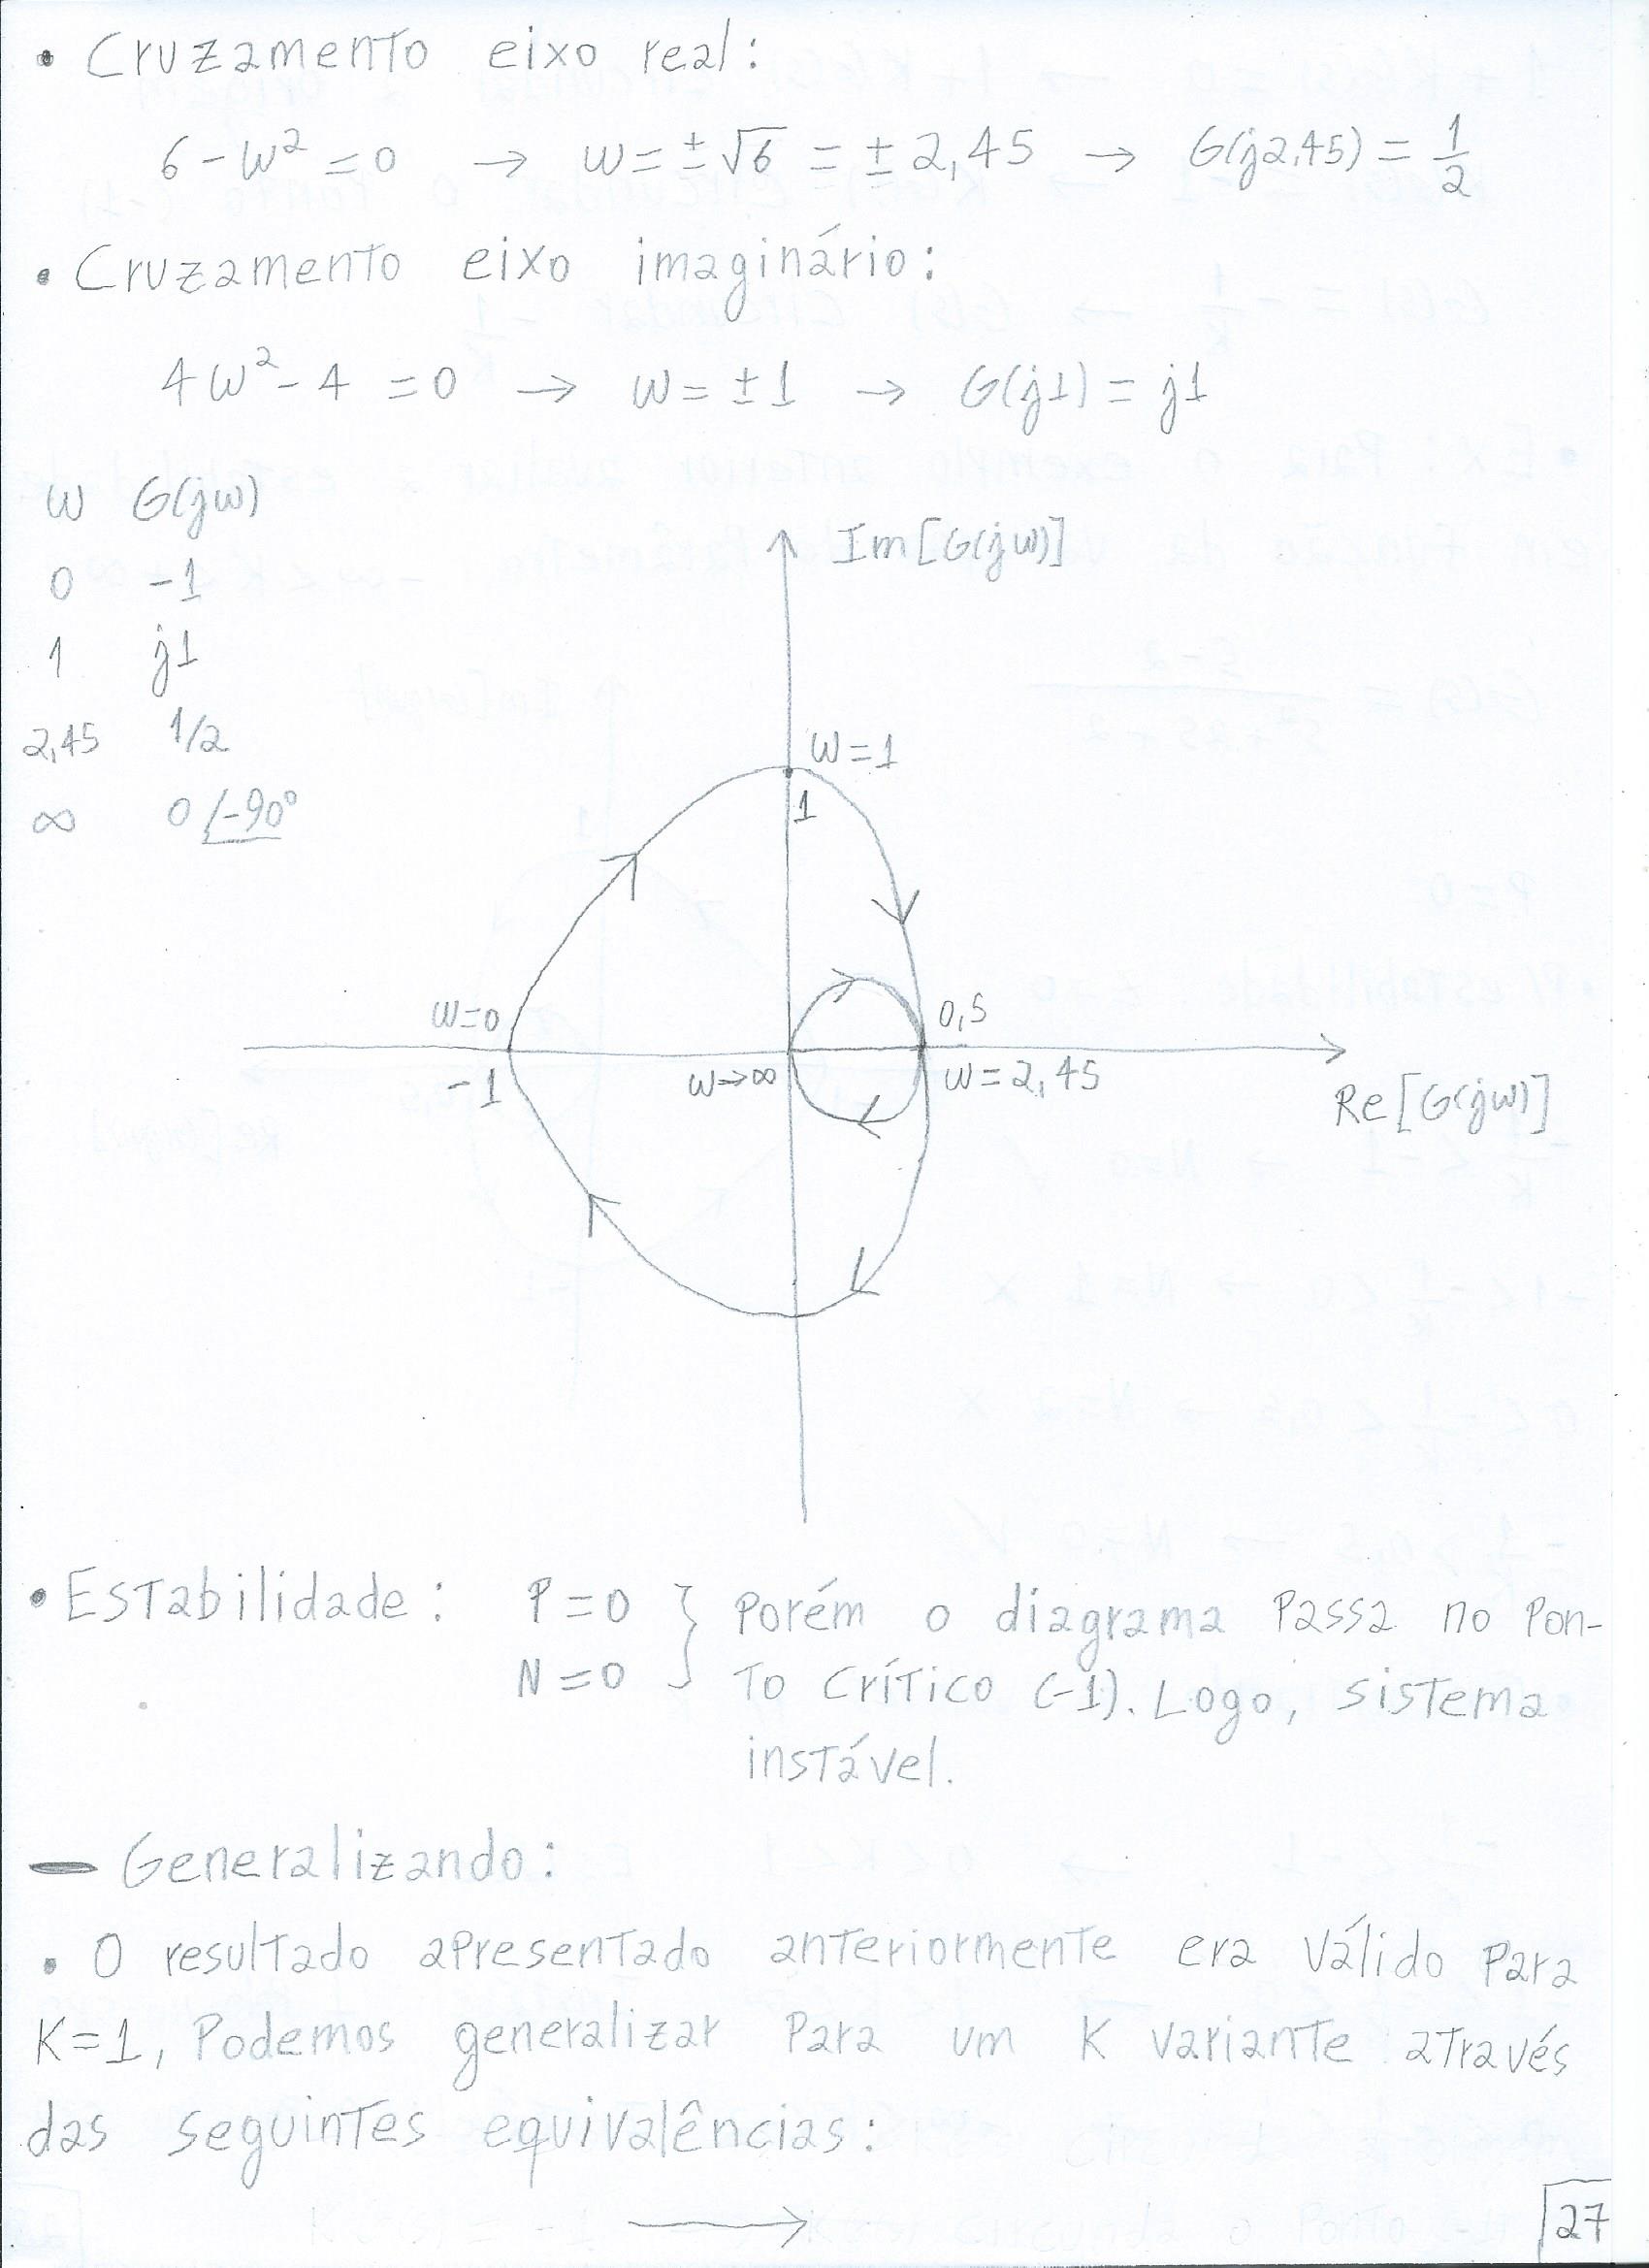 • Cruzamento eixo real:
6 - w² = 0 → w = ±√6 = ± 2,45 → G(j2,45) = 1/2
• Cruzamento eixo imaginário:
4w² - 4 = 0 → w = ±1 → G(j1) = j1
w G(jw)
0 -1
1 j1
2,45 1/2
∞ 0∠-90°
Im[G(jw)]
w=1
1
w=0
0,5
-1
w→∞
w=2,45
Re[G(jw)]
• Estabilidade: P=0 } Porém o diagrama Passa no Pon-
N=0 To Crítico (-1). Logo, sistema
instável.
— Generalizando:
• O resultado apresentado anteriormente era válido Para
K=1, Podemos generalizar Para um K variante através
das seguintes equivalências:
→
27